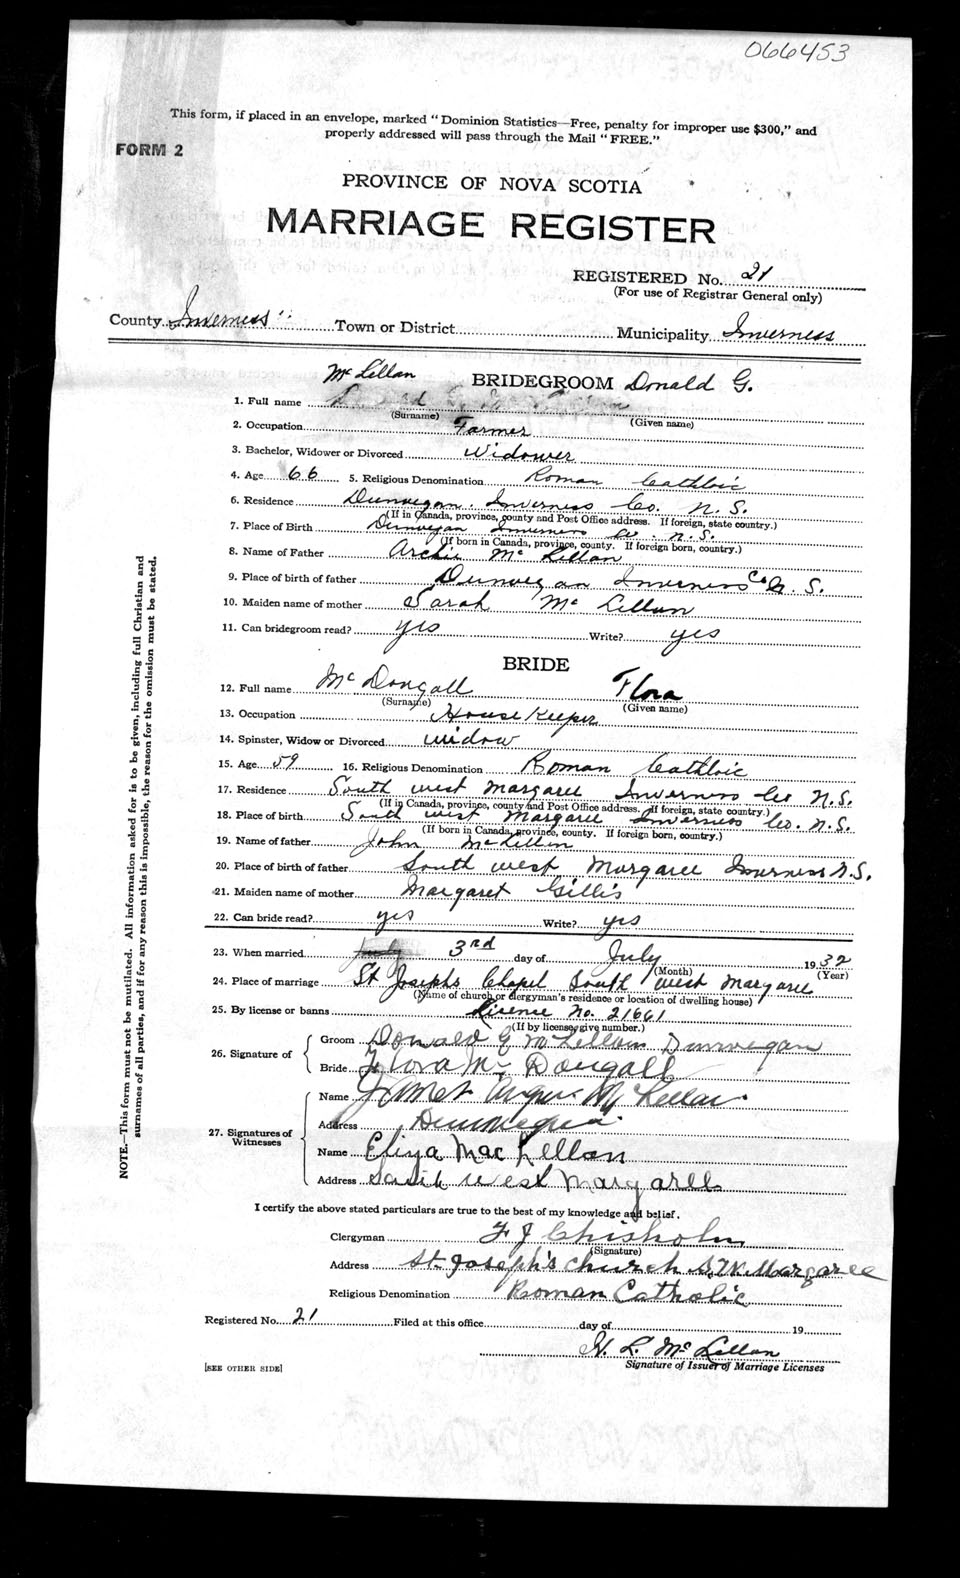 066453
This form, if placed in an envelope, marked "Dominion Statistics—Free, penalty for improper use $300," and
properly addressed will pass through the Mail "FREE."
FORM 2
PROVINCE OF NOVA SCOTIA
MARRIAGE REGISTER
REGISTERED No. 21
(For use of Registrar General only)
County Inverness Town or District Municipality Inverness
BRIDEGROOM
1. Full name McLellan Donald G.
(Surname) (Given name)
2. Occupation Farmer
3. Bachelor, Widower or Divorced Widower
4. Age 66 5. Religious Denomination Roman Catholic
6. Residence Dunvegan Inverness Co. N.S.
(If in Canada, province, county and Post Office address. If foreign, state country.)
7. Place of Birth Dunvegan Inverness Co. N.S.
(If born in Canada, province, county. If foreign born, country.)
8. Name of Father Archie McLellan
9. Place of birth of father Dunvegan Inverness Co N.S.
10. Maiden name of mother Sarah McLellan
11. Can bridegroom read? yes Write? yes
BRIDE
12. Full name McDougall Flora
(Surname) (Given name)
13. Occupation House Keeper
14. Spinster, Widow or Divorced widow
15. Age 59 16. Religious Denomination Roman Catholic
17. Residence South west Margaree Inverness Co N.S.
(If in Canada, province, county and Post Office address. If foreign, state country.)
18. Place of birth South west Margaree Inverness Co. N.S.
(If born in Canada, province, county. If foreign born, country.)
19. Name of father John McLellan
20. Place of birth of father South west Margaree Inverness N.S.
21. Maiden name of mother Margaret Gillis
22. Can bride read? yes Write? yes
23. When married 3rd day of July 1932
(Month) (Year)
24. Place of marriage St Josephs Chapel South west Margaree
(Name of church or clergyman's residence or location of dwelling house)
25. By license or banns License No. 21661
(If by license, give number.)
26. Signature of
Groom Donald G McLellan Dunvegan
Bride Flora McDougall
27. Signatures of Witnesses
Name Angus McLellan
Address Dunvegan
Name Eliza MacLellan
Address South west Margaree
I certify the above stated particulars are true to the best of my knowledge and belief.
Clergyman F J Chisholm
(Signature)
Address St. Joseph's Church S.W. Margaree
Religious Denomination Roman Catholic
Registered No. 21 Filed at this office day of 19
McLellan
Signature of Issuer of Marriage Licenses
[SEE OTHER SIDE]
NOTE.—This form must not be mutilated. All information asked for is to be given, including full Christian and
surnames of all parties, and if for any reason this is impossible, the reason for the omission must be stated.